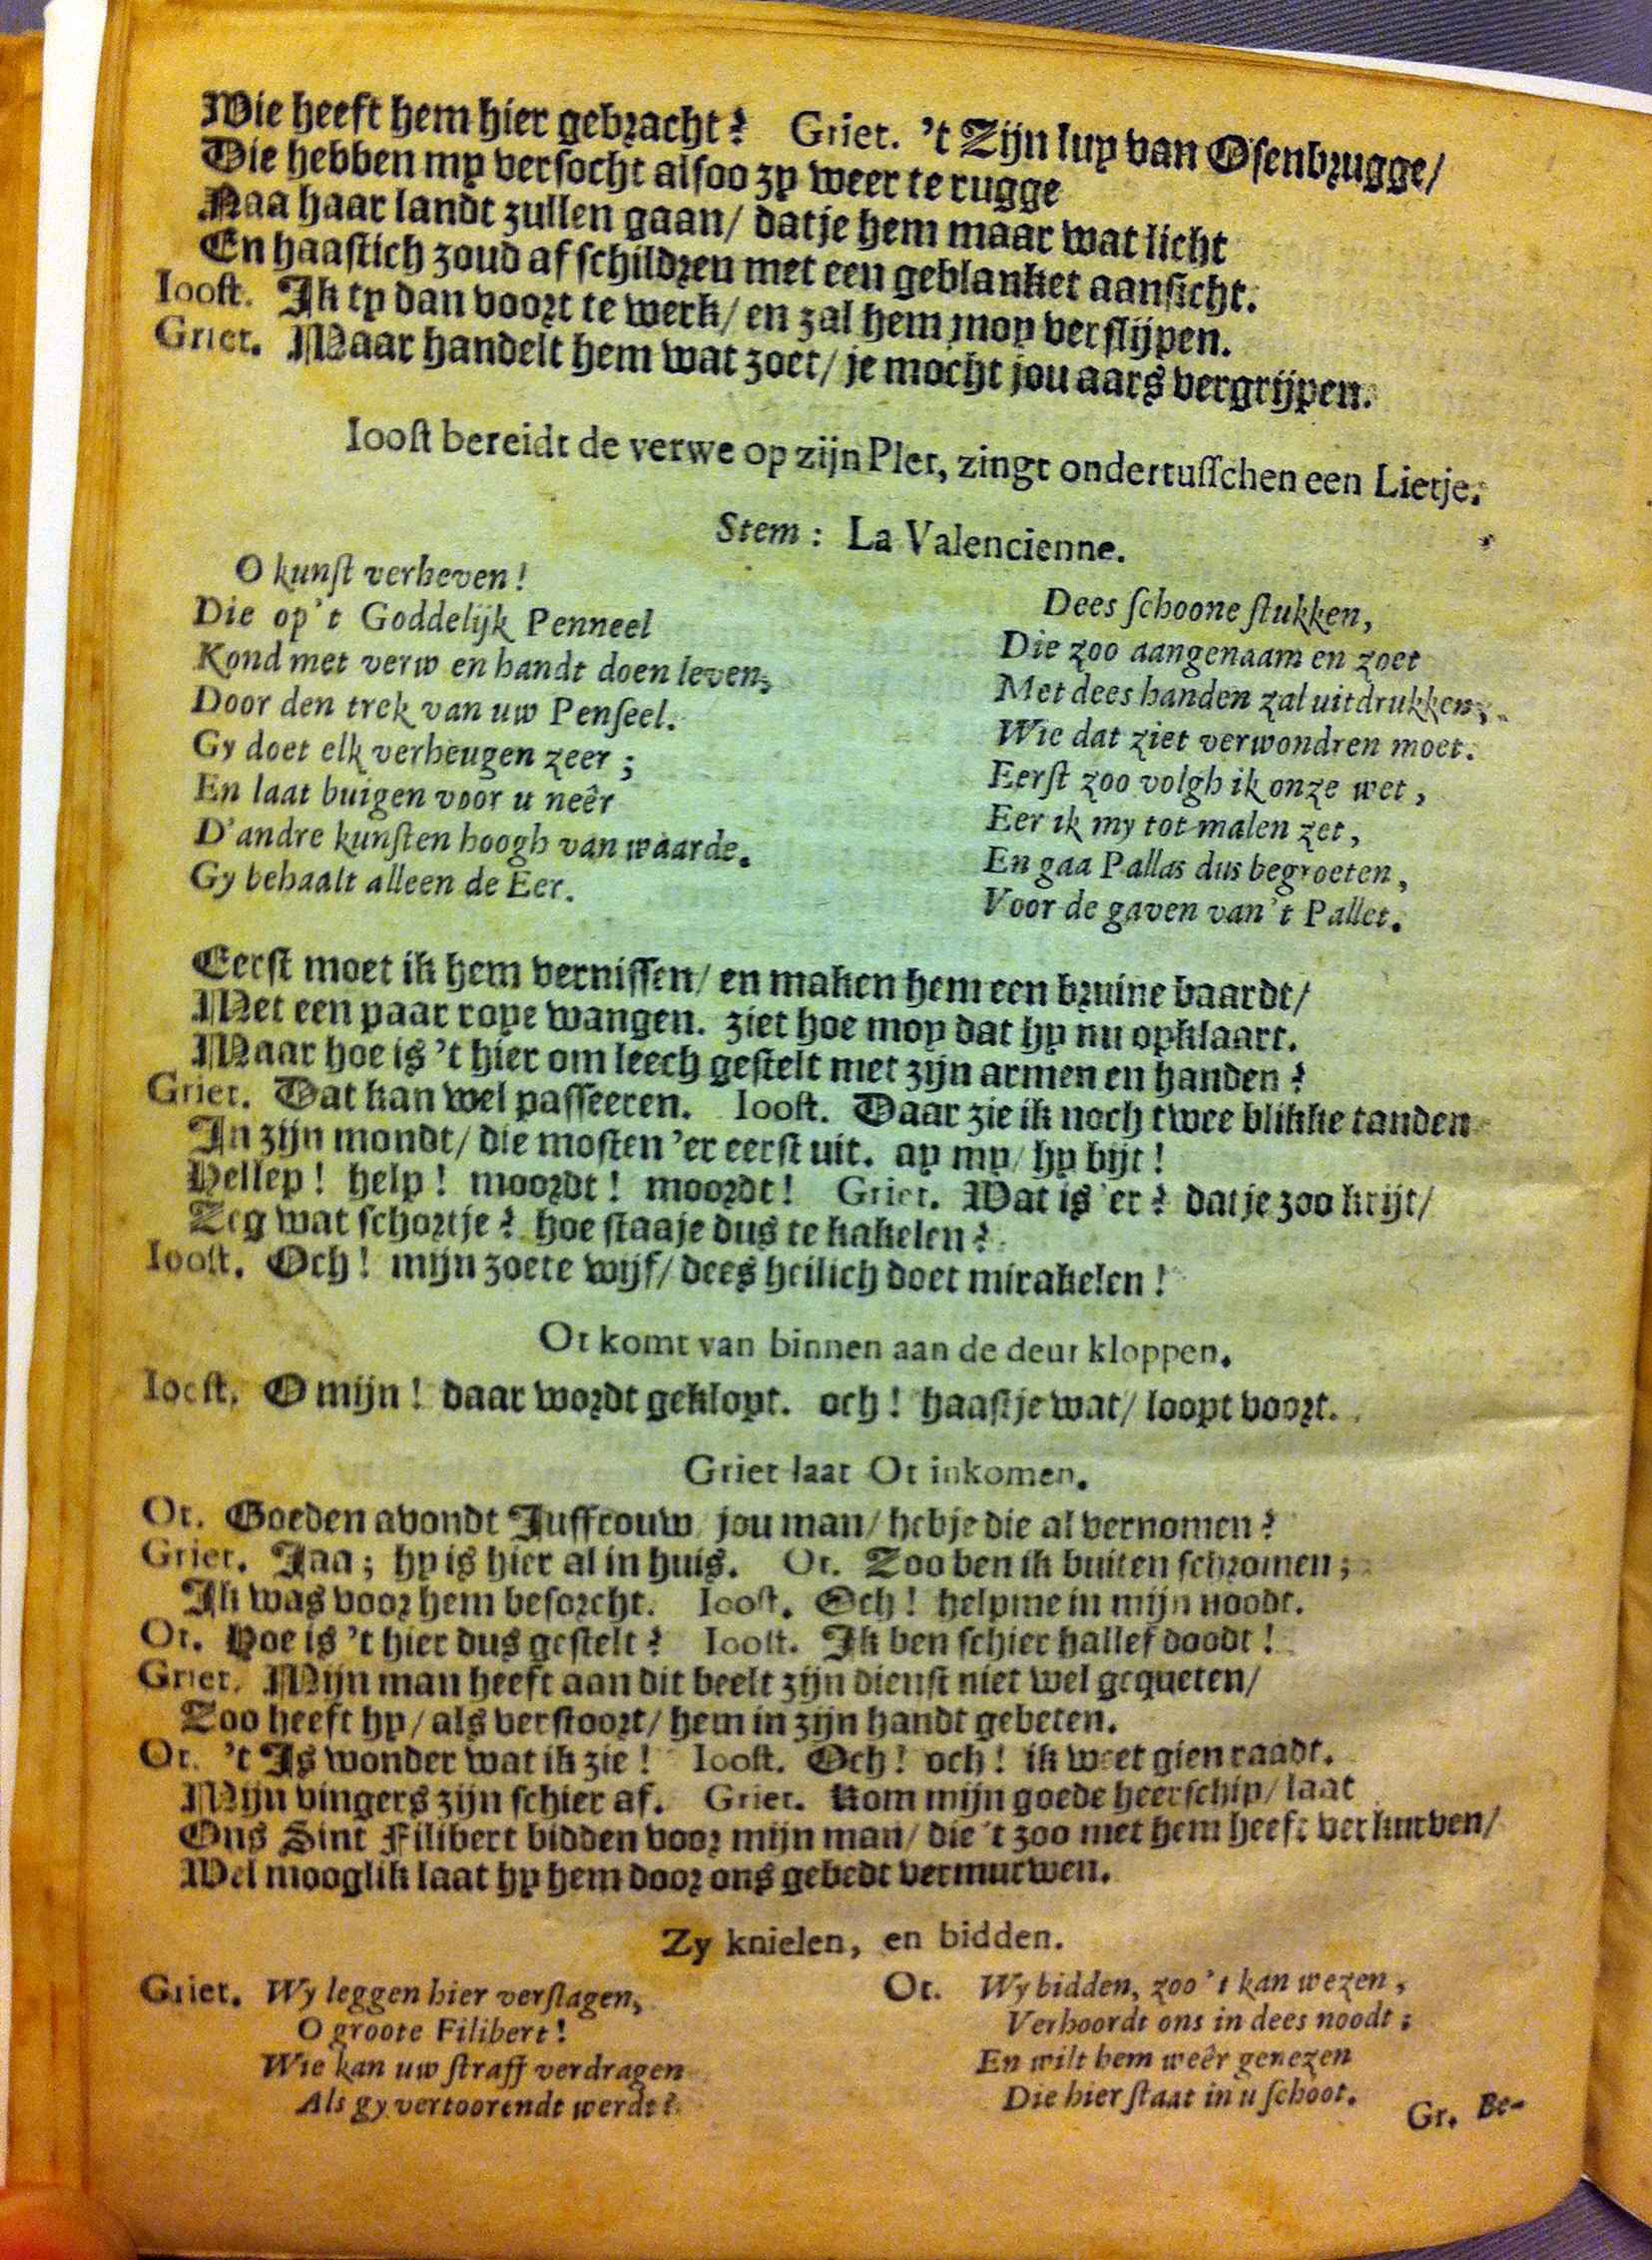 Wie heeft hem hier gebracht? Griet. 't Zijn luy van Osenbrugge/
Die hebben my versocht alsoo zy weer te rugge
Naa haar landt zullen gaan/ datje hem maar wat licht
En haastich zoud af schildren met een geblanket aansicht.
Ioost. Ik ty dan voort te werk/ en zal hem moy verslijpen.
Griet. Maar handelt hem wat zoet/ je mocht jou aars vergrijpen.
Ioost bereidt de verwe op zijn Plet, zingt ondertusschen een Lietje.
Stem: La Valencienne.
O kunst verheven!
Die op't Goddelijk Penneel
Kond met verw en handt doen leven,
Door den trek van uw Penseel.
Gy doet elk verheugen zeer;
En laat buigen voor u neêr
D'andre kunsten hoogh van waarde.
Gy behaalt alleen de Eer.
Dees schoone stukken,
Die zoo aangenaam en zoet
Met dees handen zal uitdrukken,
Wie dat ziet verwondren moet.
Eerst zoo volgh ik onze wet,
Eer ik my tot malen zet,
En gaa Pallas dus begroeten,
Voor de gaven van't Pallet.
Eerst moet ik hem vernissen/ en maken hem een bruine baardt/
Met een paar roye wangen. ziet hoe moy dat hy nu opklaart.
Maar hoe is 't hier om leech gestelt met zijn armen en handen?
Griet. Dat kan wel passeeren. Ioost. Daar zie ik noch twee blikke tanden
In zijn mondt/ die mosten 'er eerst uit. ay my/ hy bijt!
Hellep! help! moordt! moordt! Griet. Wat is 'er? datje zoo krijt/
Zeg wat schortje? hoe staaje dus te kakelen?
Ioost. Och! mijn zoete wijf/ dees heilich doet mirakelen!
Ot komt van binnen aan de deur kloppen.
Ioost. O mijn! daar wordt geklopt. och! haastje wat/ loopt voort.
Griet laat Ot inkomen.
Ot. Goeden avondt Juffrouw jou man/ hebje die al vernomen?
Griet. Jaa; hy is hier al in huis. Ot. Zoo ben ik buiten schromen;
Ik was voor hem besorcht. Ioost. Och! helpme in mijn noodt.
Ot. Hoe is 't hier dus gestelt? Ioost. Ik ben schier hallef doodt!
Griet. Mijn man heeft aan dit beelt zijn dienst niet wel gequeten/
Zoo heeft hy/ als verstoort/ hem in zijn handt gebeten.
Ot. 't Is wonder wat ik zie! Ioost. Och! och! ik weet gien raadt.
Mijn vingers zijn schier af. Griet. Kom mijn goede heerschip/ laat
Ons Sint Filibert bidden voor mijn man/ die 't zoo met hem heeft verkurven/
Wel mooglik laat hy hem door ons gebedt vermurwen.
Zy knielen, en bidden.
Griet. Wy leggen hier verslagen,
O groote Filibert!
Wie kan uw straff verdragen
Als gy vertoorendt werdt?
Ot. Wy bidden, zoo't kan wezen,
Verhoordt ons in dees noodt;
En wilt hem weêr genezen
Die hier staat in u schoot.
Gr. Be-